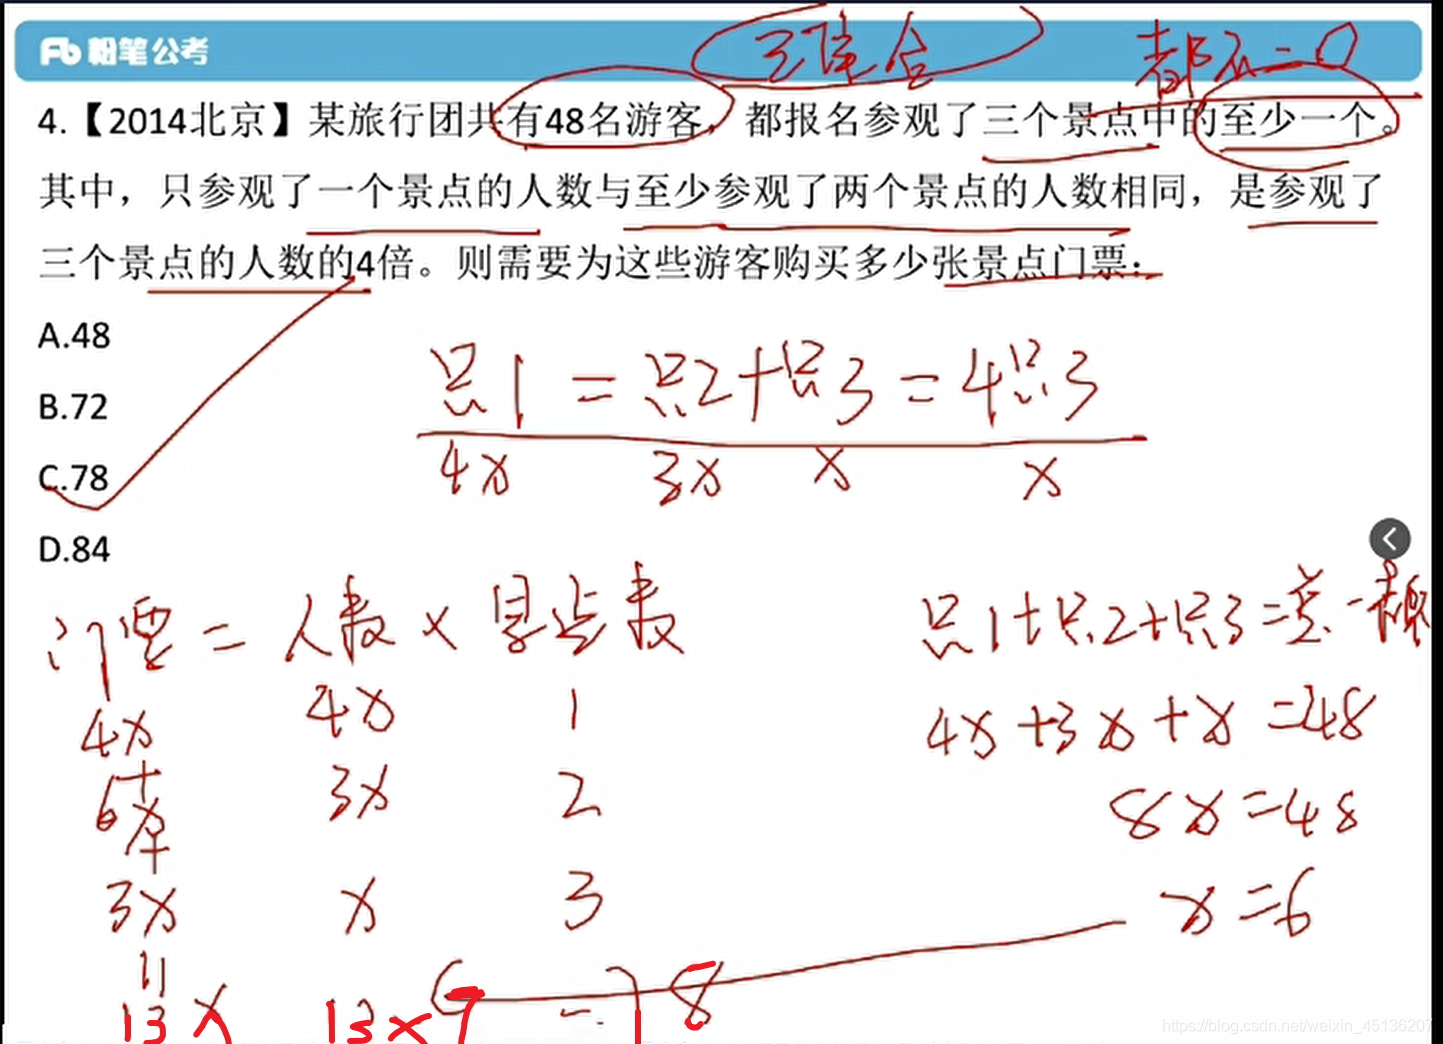 粉笔公考
三集合
都不=0
4.【2014北京】某旅行团共有48名游客，都报名参观了三个景点中的至少一个。
其中，只参观了一个景点的人数与至少参观了两个景点的人数相同，是参观了
三个景点的人数的4倍。则需要为这些游客购买多少张景点门票：
A.48
B.72
C.78
D.84
只1=只2+只3=4只3
4x 3x x x
门票=人数×景点数
只1+只2+只3=总-都不
4x 4x 1
4x+3x+x=48
+
6x 3x 2
8x=48
+
3x x 3
x=6
11
13x 13×
https://blog.csdn.net/weixin_45136207